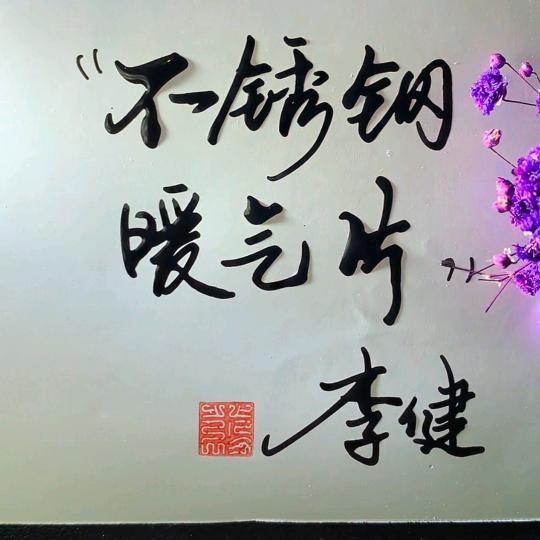 “不锈钢
暖气片”
李健